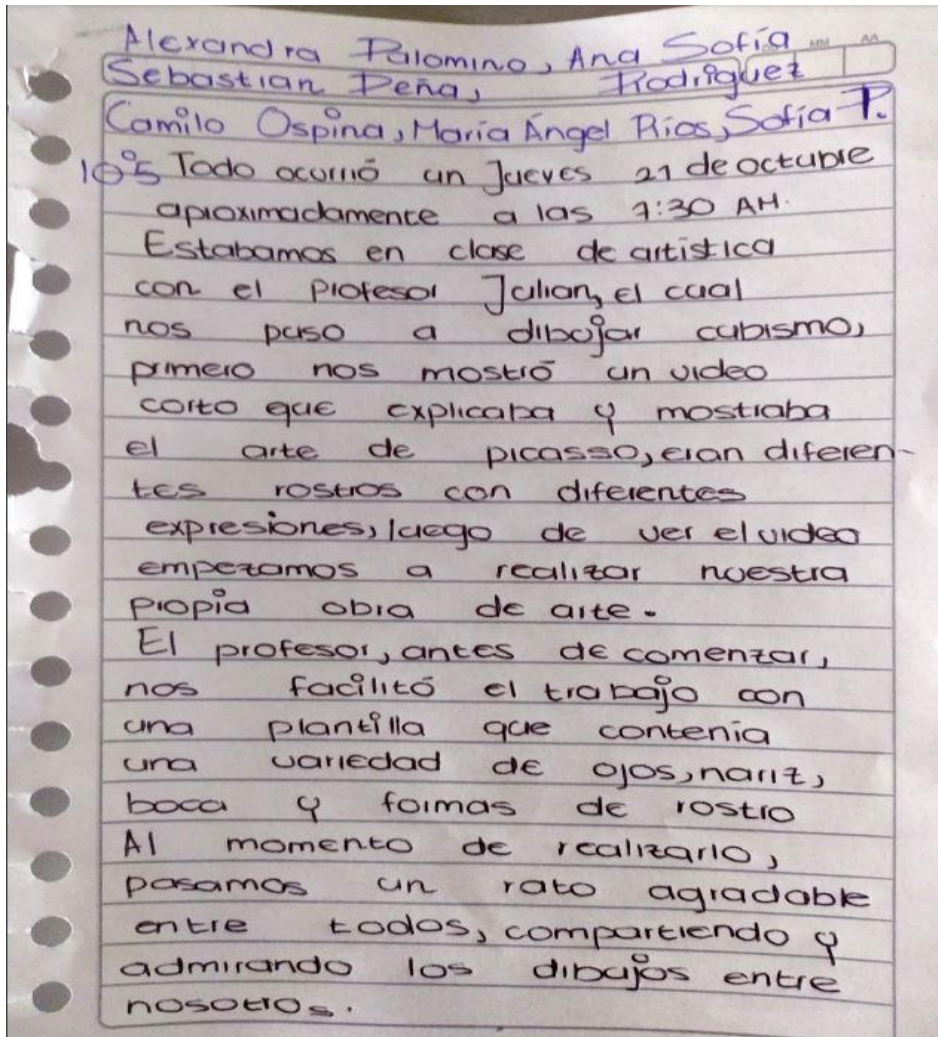 Alexandra Palomino, Ana Sofía
Sebastian Peña, Rodriguez
Camilo Ospina, María Ángel Ríos, Sofía P.
10°5 Todo ocurrió un Jueves 21 de octubre
aproximadamente a las 7:30 AM.
Estabamos en clase de artistica
con el profesor Julian, el cual
nos puso a dibujar cubismo,
primero nos mostró un video
corto que explicaba y mostraba
el arte de picasso, eran diferen-
tes rostros con diferentes
expresiones, luego de ver el video
empezamos a realizar nuestra
propia obra de arte.
El profesor, antes de comenzar,
nos facilitó el trabajo con
una plantilla que contenia
una variedad de ojos, nariz,
boca y formas de rostro
Al momento de realizarlo,
pasamos un rato agradable
entre todos, compartiendo y
admirando los dibujos entre
nosotros.